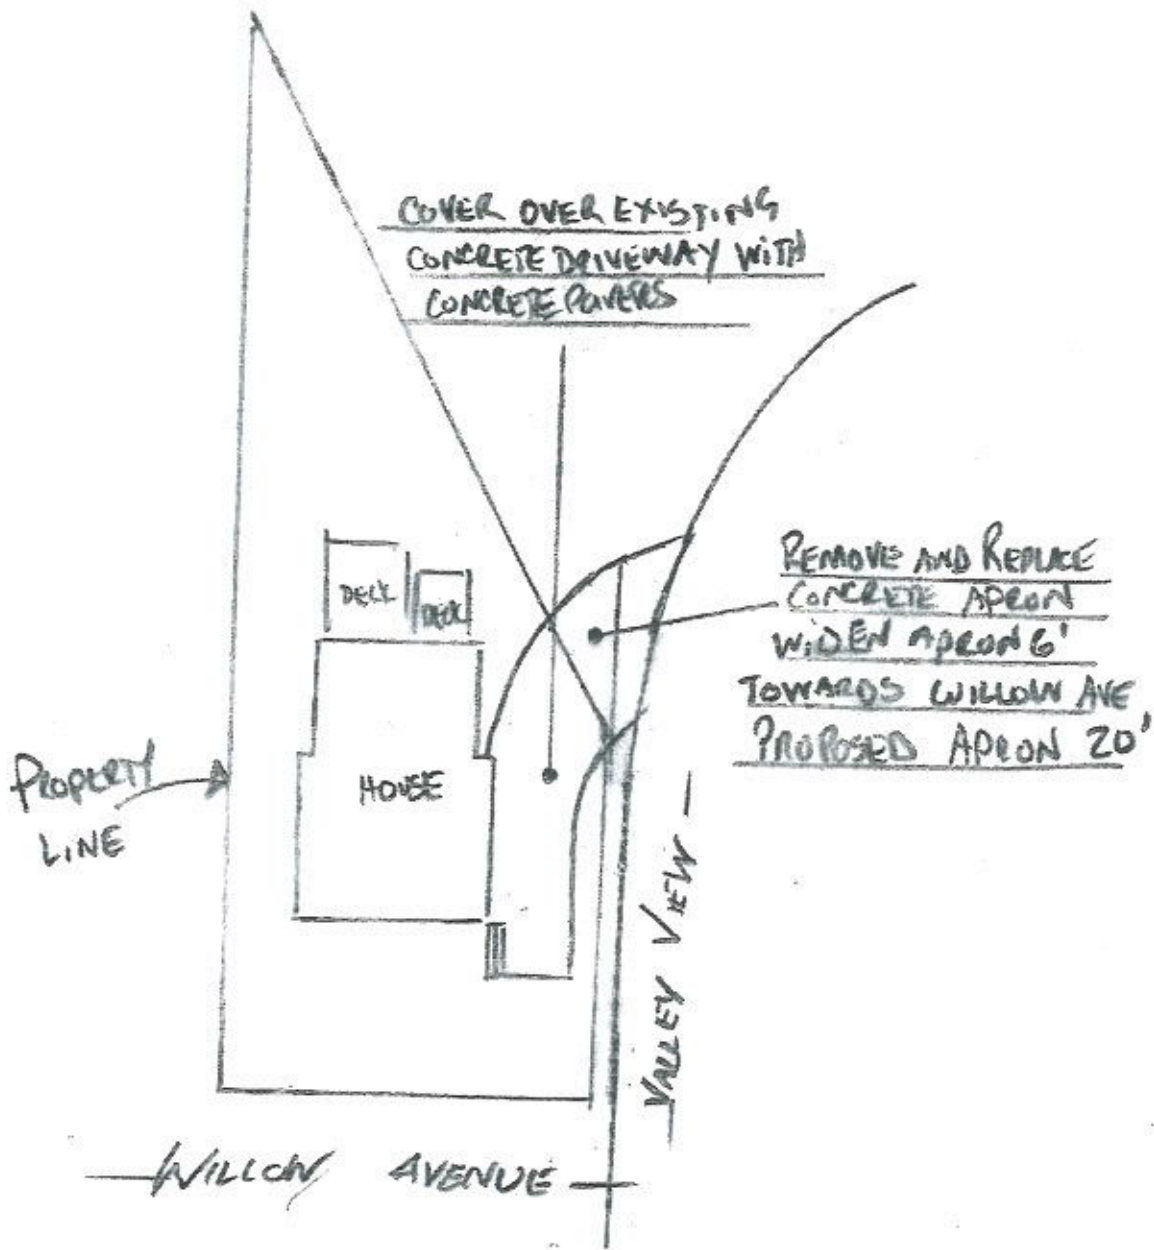 COVER OVER EXISTING
CONCRETE DRIVEWAY WITH
CONCRETE PAVERS
REMOVE AND REPLACE
CONCRETE APRON
WIDEN APRON 6'
TOWARDS WILLOW AVE
PROPOSED APRON 20'
DECK
DECK
HOUSE
PROPERTY
LINE
VALLEY VIEW
WILLOW AVENUE